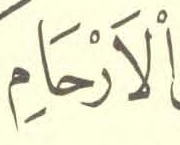 الْاَرْحَامِ